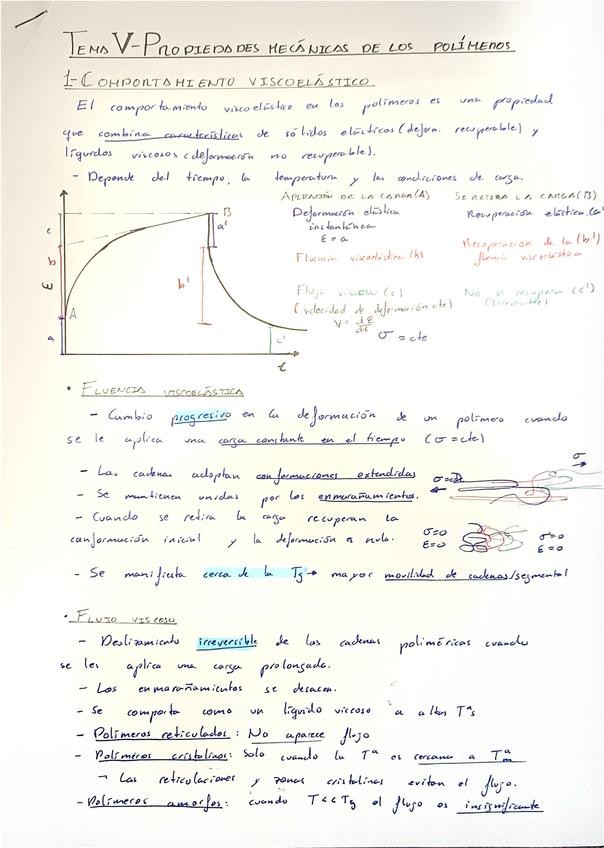 TEMA V-PROPIEDADES MECÁNICAS DE LOS POLÍMEROS
1-COMPORTAMIENTO VISCOELÁSTICO
El comportamiento viscoelástico en los polímeros es una propiedad
que combina características de sólidos elásticos (deform. recuperable) y
líquidos viscosos (deformación no recuperable).
- Depende del tiempo, la temperatura y las condiciones de carga.
APLICACIÓN DE LA CARGA (A)
Deformación elástica
instantánea
ε = a
Fluencia viscoelástica (b)
Flujo viscoso (c)
(velocidad de deformación cte)
V = dε/dt
σ = cte
SE RETIRA LA CARGA (B)
Recuperación elástica (a'
Recuperación de la (b')
fluencia viscoelástica
No se recupera (c')
(Irreversible)
c
b
ε
a
A
B
a'
b'
c'
t
• FLUENCIA VISCOELÁSTICA
- Cambio progresivo en la deformación de un polímero cuando
se le aplica una carga constante en el tiempo (σ = cte)
- Las cadenas adoptan conformaciones estendidas
- Se mantienen unidas por los enmarañamientos.
- Cuando se retira la carga recuperan la
conformación inicial y la deformación es nula.
σ
σ=0
ε=0
σ=0
ε=0
- Se manifiesta cerca de la Tg → mayor movilidad de cadenas/segmental
• FLUJO VISCOSO
- Deslizamiento irreversible de las cadenas poliméricas cuando
se les aplica una carga prolongada.
- Los enmarañamientos se desacen.
- Se comporta como un líquido viscoso a altas Tªs
- Polímeros reticulados: No aparece flujo
- Polímeros cristalinos: Solo cuando la Tª es cercana a Tªm
¬ Las reticulaciones y zonas cristalinas evitan el flujo.
- Polímeros amorfos: cuando T<<Tg el flujo es insignificante